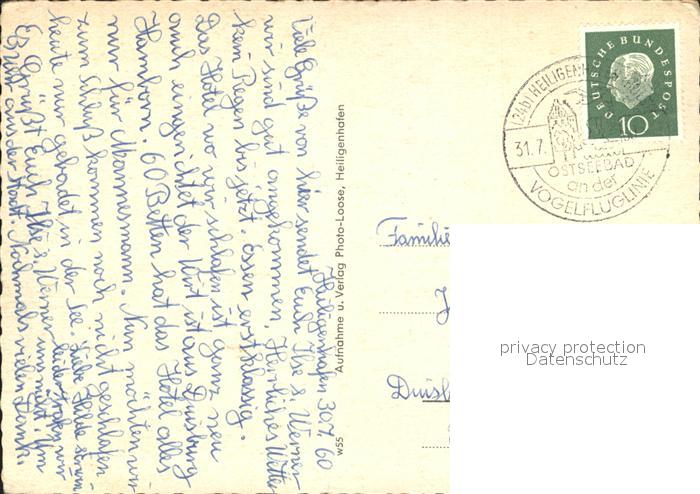 Heiligenhafen 30.7.60
Viele Grüße von hier sendet Euch Ilse u. Werner
wir sind gut angekommen. Herrliches Wetter
kein Regen bis jetzt. Essen erstklassig.
Das Hotel wo wir schlafen ist ganz neu
auch eingerichtet der Wirt ist aus Duisburg
Hamborn. 60 Betten hat das Hotel alles
nur für Mannesmann. Nun möchten wir
zum Schluß kommen noch nicht geschlafen
heute nur gebadet in der See. Liebe Hilde
Es Grüßt Euch Ilse u. Werner leider trafen wir
uns nicht ihm
aus der Stadt. Nochmals vielen Dank.
Aufnahme u. Verlag Photo-Loose, Heiligenhafen
w55
(24b) HEILIGENH
31.7.
OSTSEEBAD
an der
VOGELFLUGLINIE
DEUTSCHE BUNDESPOST
10
Familie
Duisb
privacy protection
Datenschutz